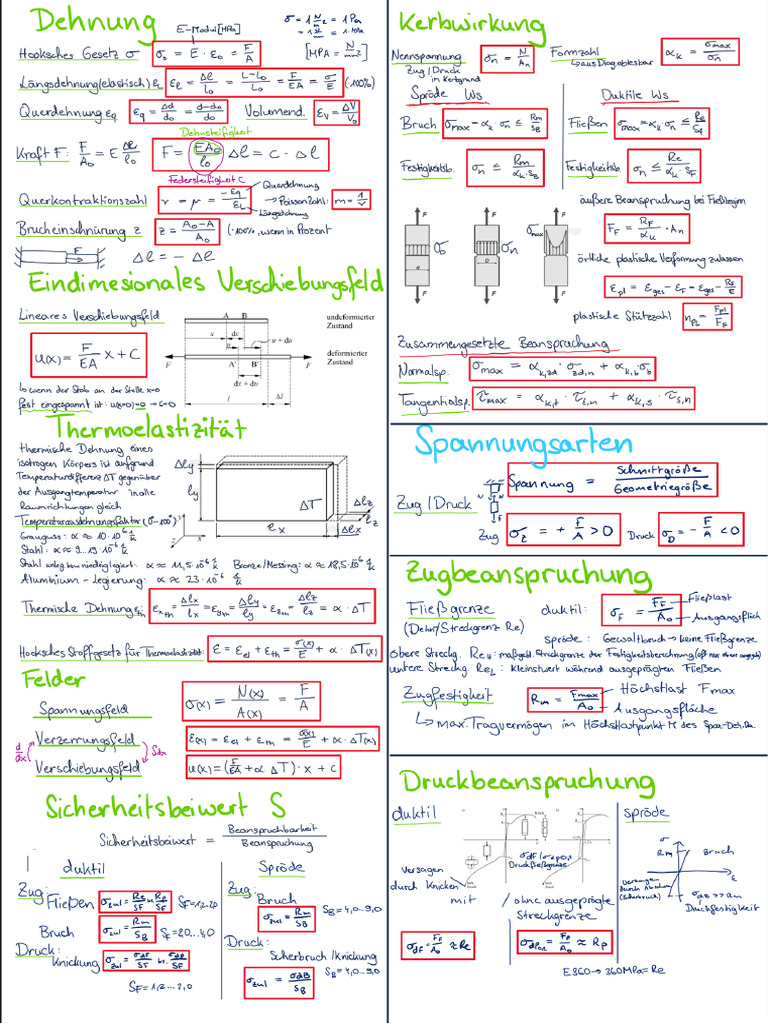 Dehnung
E-Modul [MPa]
σ = 1 N/m² = 1 Pa
[MPa = N/mm²]
Hooksches Gesetz σ
σ₀ = E · ε₀ = F/A
Längsdehnung (elastisch) εL
εL = Δl/l₀ = L-L₀/L₀ = F/EA = σ/E (·100%)
Querdehnung εq
εq = Δd/d₀ = d-d₀/d₀
Volumend.
εV = ΔV/V₀
Dehnsteifigkeit
Kraft F: F/A₀ = E Δl/l₀
F = EA₀/l₀ Δl = C · Δl
Federsteifigkeit C
Querkontraktionszahl
ν = μ = -εq/εL
Querdehnung
Längsdehnung
→ Poisson Zahl: m = 1/ν
Brucheinschnürung z
z = A₀-A/A₀ (·100%, wenn in Prozent
F
Δl = -Δl
Eindimesionales Verschiebungsfeld
Lineares Verschiebungsfeld
u(x) = F/EA x + C
A B
undeformierter
Zustand
x dx
u u + du
deformierter
Zustand
F A' B' F
dx + du
l Δl
↳ wenn der Stab an der Stelle x=0
fest eingespannt ist: u(x=0)=0 → C=0
Thermoelastizität
thermische Dehnung eines
isotropen Körpers ist aufgrund
Temperaturdifferenz ΔT gegenüber
der Ausgangtemperatur in alle
Raumrichtungen gleich
Δly
ly
ΔT
lx Δlx
Δlz
lz
y
x
z
Temperaturausdehnungsfaktor (0-100°)
Grauguss: α ≈ 10·10⁻⁶ 1/K
Stahl: α ≈ 9...19·10⁻⁶ 1/K
Stahl unleg. bzw niedrig legiert: α ≈ 11,5·10⁻⁶ 1/K
Bronze/Messing: α ≈ 18,5·10⁻⁶ 1/K
Aluminium - Legierung: α ≈ 23·10⁻⁶ 1/K
Thermische Dehnung εth
εxth = Δlx/lx = εyth = Δly/ly = εzth = Δlz/lz = α · ΔT
Hooksches Stoffgesetz für Thermoelastizität:
ε = εel + εth = σ(x)/E + α · ΔT(x)
Felder
Spannungsfeld
σ(x) = N(x)/A(x) = F/A
Verzerrungsfeld
ε(x) = εel + εth = σ(x)/E + α · ΔT(x)
d/dx
∫dx
Verschiebungsfeld
u(x) = (F/EA + α · ΔT) · x + C
Sicherheitsbeiwert S
Sicherheitsbeiwert = Beanspruchbarkeit/Beanspruchung
duktil
Zug:
Fließen
SF = 1,2...2,0
Bruch
σzul = Rm/SB
SF = 2,0...4,0
Druck:
Knickung
SF = 1,2...2,0
Spröde
Zug:
Bruch
σzul = Rm/SB
SB = 4,0...9,0
Druck:
Scherbruch/Knickung
σzul = σdB/SB
SB = 4,0...9,0
Kerbwirkung
Nennspannung
Zug/Druck
in Kerbgrund
σn = F/An
Formzahl
↳ aus Diag. ablesbar
αk = σmax/σn
Spröde Ws
Duktile Ws
Bruch
σmax = αk · σn ≤ Rm/SB
Fließen
σmax = αk · σn ≤ Re/SF
Festigkeitsb.
σn ≤ Rm/αk·SB
Festigkeitsb.
σn ≤ Re/αk·SF
äußere Beanspruchung bei Fließbeginn
FF = RF/αk · An
F F F
σ σn σmax
d D
F F F
örtliche plastische Verformung zulassen
εpl = εges - εF = εges - RF/E
plastische Stützzahl
npl = Fpl/FF
Zusammengesetzte Beanspruchung
Normalsp.
σmax = αk,zd · σzd,n + αk,b · σb
Tangentialsp.
τmax = αk,t · τt,n + αk,s · τs,n
Spannungsarten
Spannung = Schnittgröße/Geometriegröße
Zug/Druck
N
Zug
σz = + F/A > 0
Druck
σD = - F/A < 0
Zugbeanspruchung
Fließgrenze
(Dehn/Streckgrenz Re)
duktil:
σF = FF/A₀
Fließlast
Ausgangsfläch
spröde: Gewaltbruch → keine Fließgrenze
obere Streckg. ReH: maßgebl. Streckgrenze der Festigkeitsberechnung
untere Streckg. ReL: Kleinstwert während ausgeprägten Fließen
Zugfestigkeit
Rm = Fmax/A₀
Höchstlast Fmax
Ausgangsfläche
↳ max. Tragvermögen im Höchstlastpunkt M des Span-Deh.Di
Druckbeanspruchung
duktil
Bruch
0,2%
σdF/σd0,2
Druckfließgrenze
Versagen
durch Knicken
mit
/ ohne ausgeprägte
Streckgrenze
σdF = FF/A₀ ≈ Re
σd0,2 = Fp/A₀ ≈ Rp
E360 → 360MPa = Re
spröde
σ
Rm
Bruch
ε
Versagen
(Scherbruch)
σdB >> Rm
Druckfestigkeit